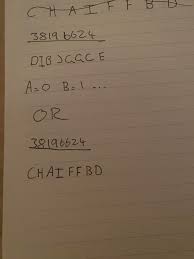 CHAIFFBD
38196624
DIBJGGCE
A=0 B=1 ...
OR
38196624
CHAIFFBD